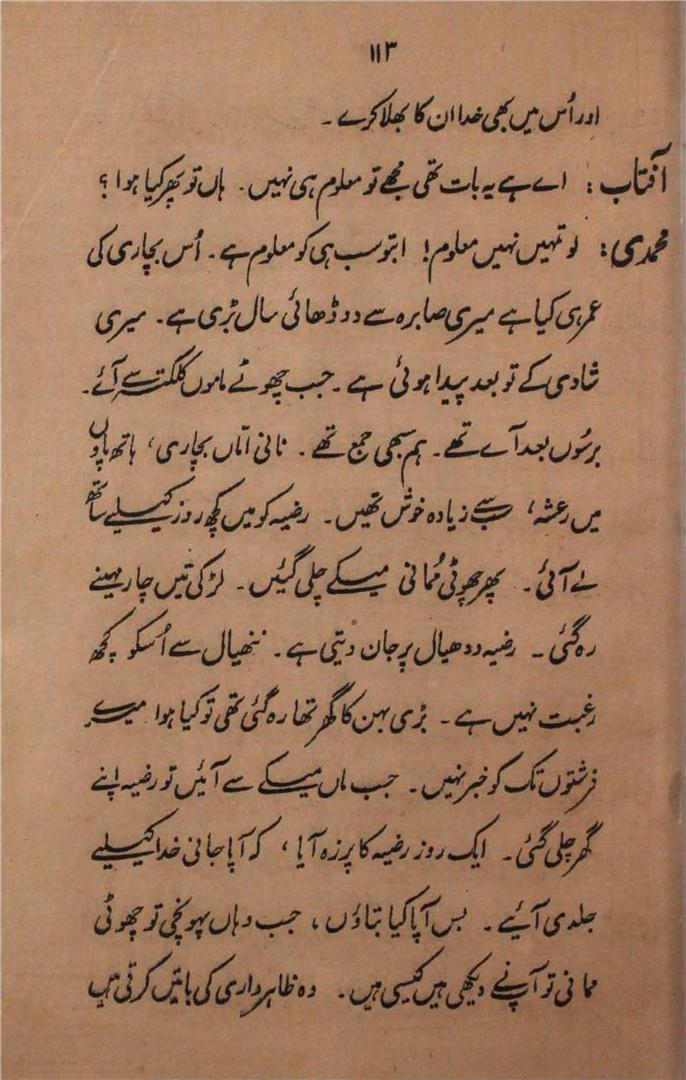 ۱۱۳
اور اُس میں بھی خدا ان کا بھلا کرے ۔
آفتاب : اے ہے یہ بات تھی مجھے تو معلوم ہی نہیں ۔ ہاں تو پھر کیا ہوا ؟
محمدی : لو تمہیں نہیں معلوم ! ابتو سب ہی کو معلوم ہے ۔ اُس بچاری کی
عمر ہی کیا ہے میری صابرہ سے دو ڈھائی سال بڑی ہے ۔ میری
شادی کے تو بعد پیدا ہوئی ہے ۔ جب چھوٹے ماموں کلکتہ سے آئے ۔
برسُوں بعد آے تھے ۔ ہم سبھی جمع تھے ۔ نانی اماّں بچاری ، ہاتھ پاوں
میں رعشہ ، سب سے زیادہ خوش تھیں ۔ رضیہ کو میں کچھ روز کیلیے ساتھ
لے آئی ۔ پھر چھوٹی مُمانی میکے چلی گئیں ۔ لڑکی تیں چار مہینے
رہ گئی ۔ رضیہ ددھیال پر جان دیتی ہے ۔ ننھیال سے اُسکو کچھ
رغبت نہیں ہے ۔ بڑی بہن کا گھر تھا رہ گئی تھی تو کیا ہوا میرے
فرشتوں تک کو خبر نہیں ۔ جب ماں میکے سے آئیں تو رضیہ اپنے
گھر چلی گئی ۔ ایک روز رضیہ کا پرزہ آیا ، کہ آپا جانی خدا کیلیے
جلدی آئیے ۔ بس آپا کیا بتاؤں ، جب وہاں پہونچی تو چھوٹی
ممانی تو آپنے دیکھی ہیں کیسی ہیں ۔ وہ ظاہرداری کی باتیں کرتی ہیں